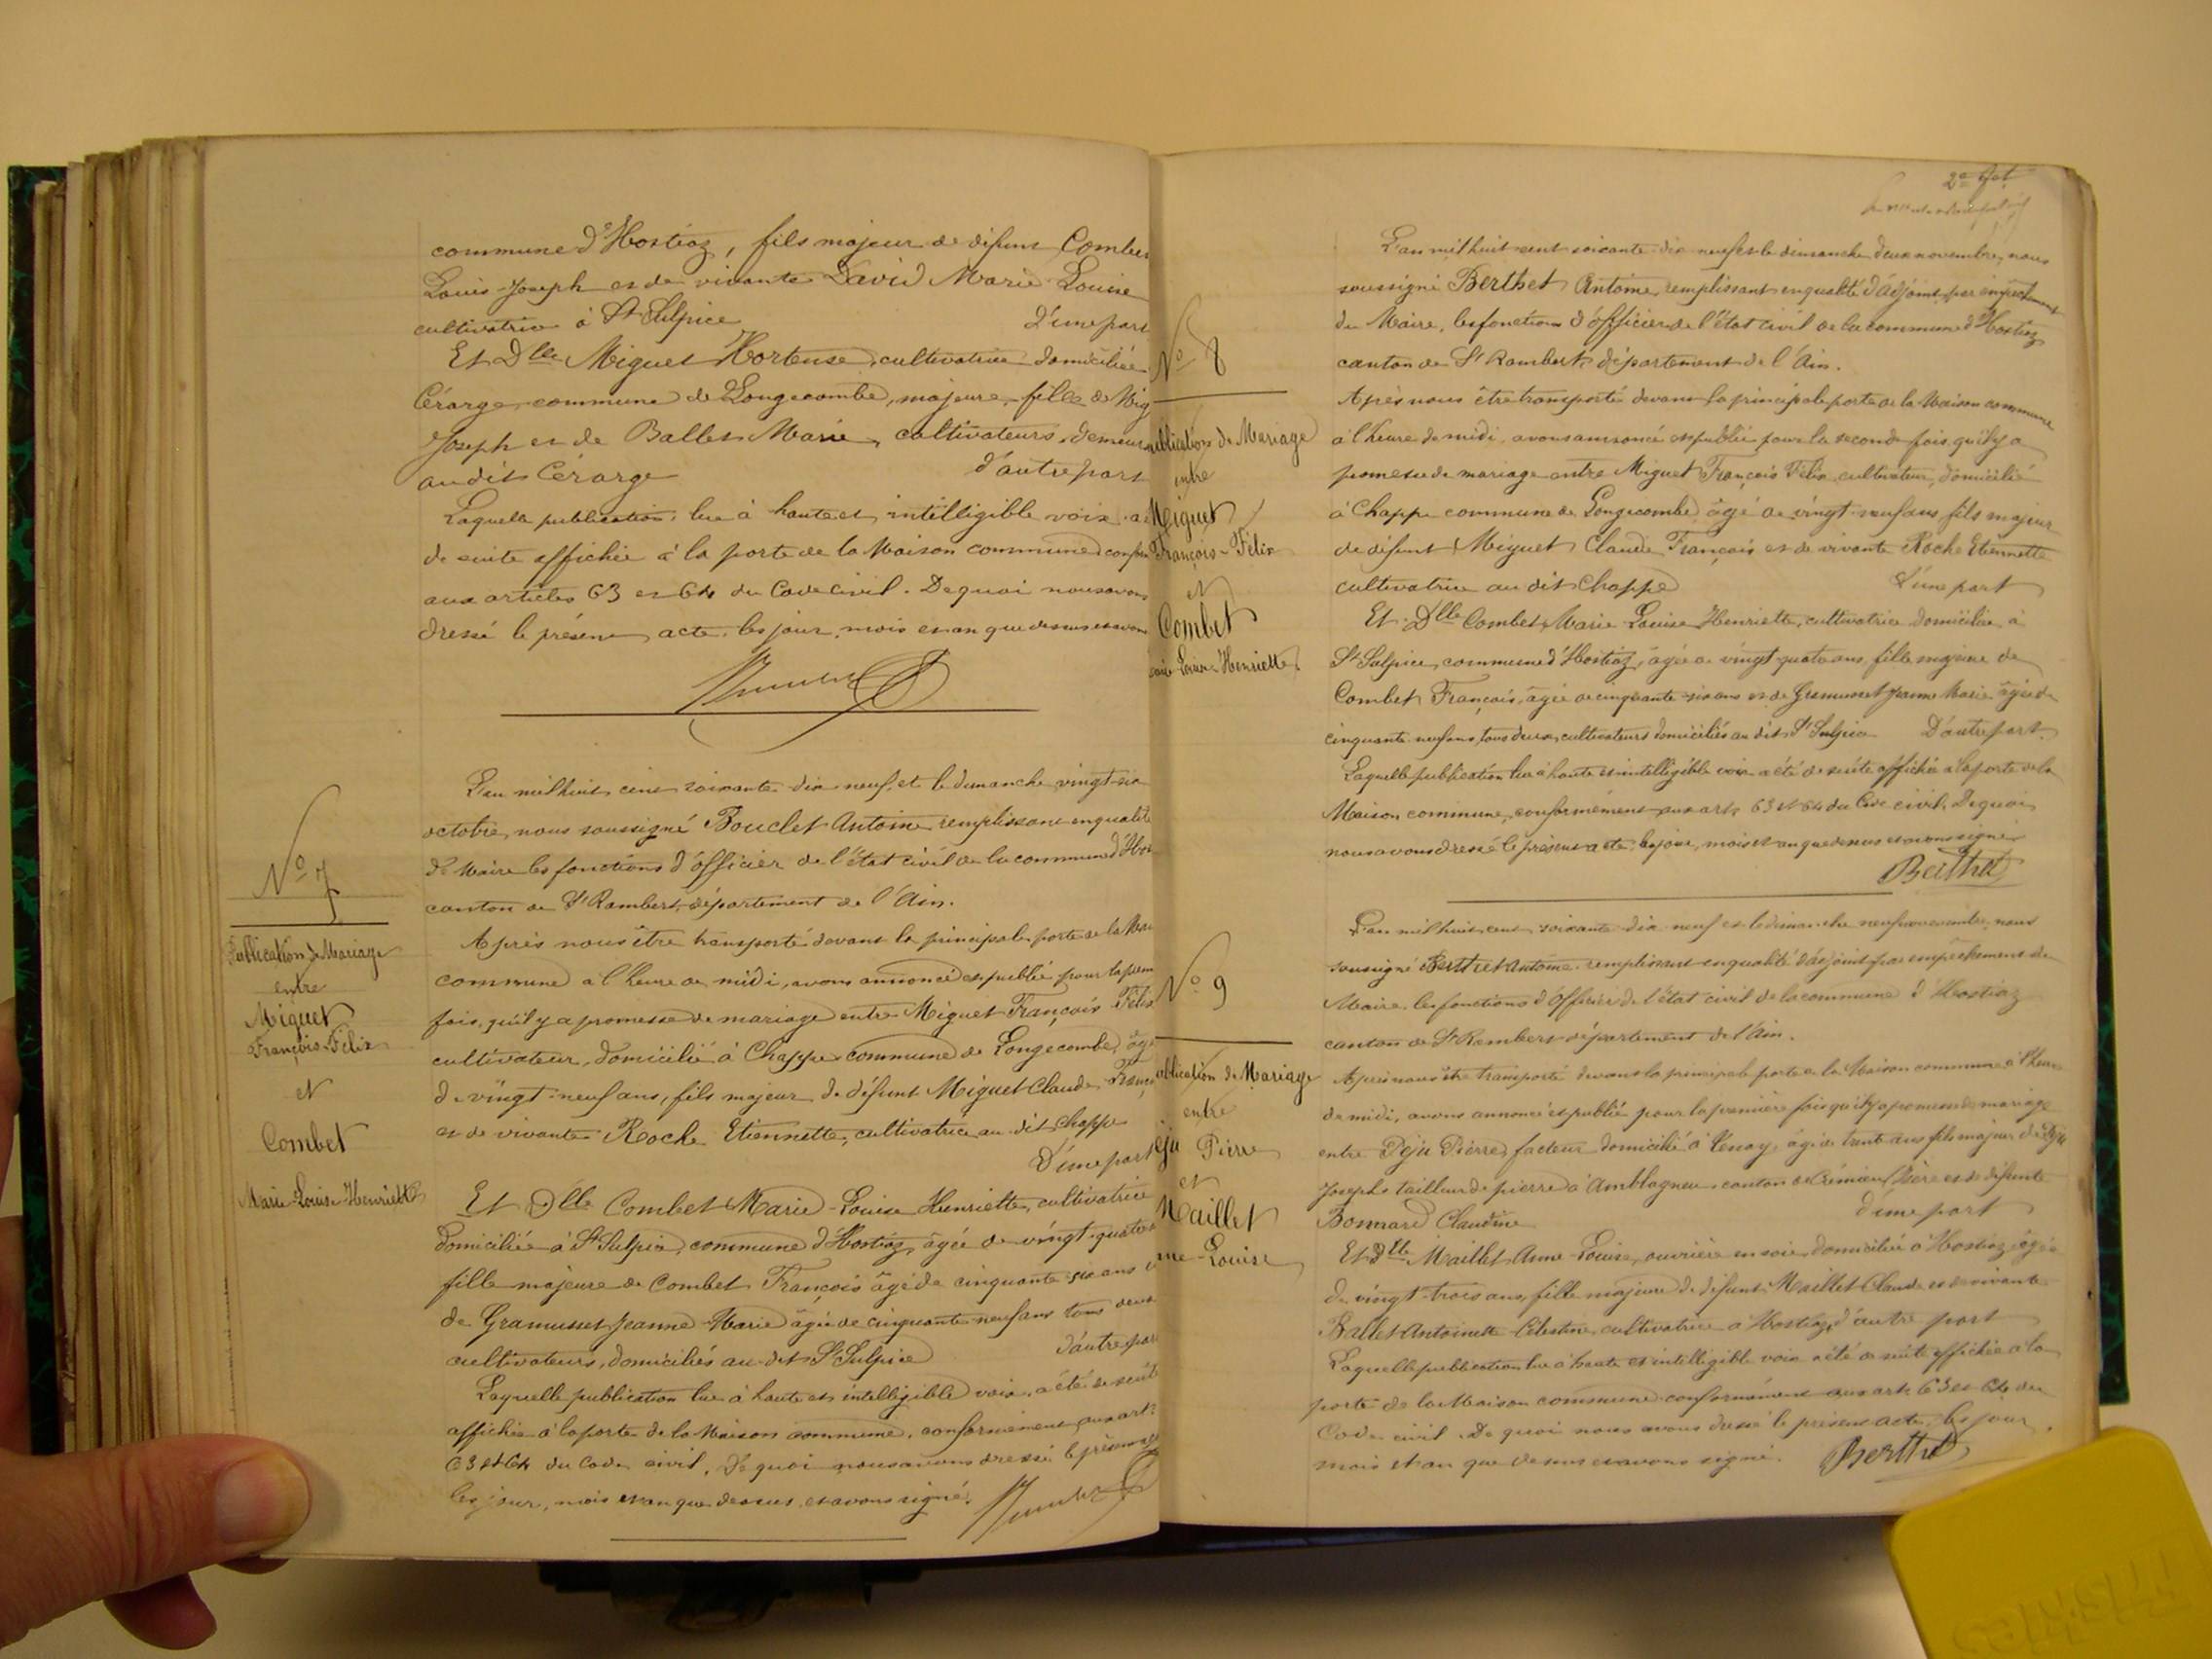 commune d'Hostiaz, fils majeur de défunt Combet
Louis-Joseph et de vivante David Marie Louise
cultivatrice à St Sulpice D'une part
Et Dlle Miguet Hortense, cultivatrice domiciliée
Cérarge, commune de Longecombe, majeure, fille de Mig
Joseph et de Ballet Marie, cultivateurs, demeur
au dit Cérarge d'autre part
Laquelle publication, lue à haute et intelligible voix a
de suite affichée à la porte de la Maison commune confor
aux articles 63 et 64 du Code Civil. De quoi nous avons
dressé le présent acte, les jour, mois et an que dessus et avons
No 7
Publication de Mariage
entre
Miguet
François-Félix
et
Combet
Marie-Louise-Henriette
L'an mil huit cent soixante dix neuf, et le dimanche vingt-six
octobre, nous soussigné Bouclet Antoine remplissant en qualité
de Maire les fonctions d'officier de l'état civil de la commune d'Hos
canton de St Rambert, département de l'Ain.
Après nous être transporté devant la principale porte de la Mai
commune à l'heure de midi, avons annoncé et publié pour la prem
fois, qu'il y a promesse de mariage entre Miguet François Félix
cultivateur, domicilié à Chappe commune de Longecombe, âgé
de vingt-neuf ans, fils majeur de défunt Miguet Claude Franç
et de vivante Roche Etiennette, cultivatrice au dit Chappe
D'une part
Et Dlle Combet Marie-Louise Henriette, cultivatrice
domiciliée à St Sulpice, commune d'Hostiaz, âgée de vingt-quatre
fille majeure de Combet François âgé de cinquante-six ans
de Gramusset Jeanne-Marie âgée de cinquante neuf ans tous deux
cultivateurs, domiciliés au dit St Sulpice d'autre par
Laquelle publication lue à haute et intelligible voix, a été de suite
affichée à la porte de la Maison commune, conformément aux art.
63 et 64 du Code civil. De quoi nous avons dressé le présent
les jour, mois et an que dessus, et avons signé.
2e fet
No 8
ublication de Mariage
entre
Miguet
François-Félix
et
Combet
arie Louise-Henriette
L'an mil huit cent soixante dix neuf et le dimanche deux novembre, nous
soussigné Berthet Antoine, remplissant en qualité d'adjoint, par empêchement
du Maire, les fonctions d'officier de l'état civil de la commune d'Hostiaz
canton de St Rambert, département de l'Ain.
Après nous être transporté devant la principale porte de la Maison commune
à l'heure de midi, avons annoncé et publié pour la seconde fois, qu'il y a
promesse de mariage entre Miguet François Félix, cultivateur, domicilié
à Chappe commune de Longecombe âgé de vingt-neuf ans fils majeur
de défunt Miguet Claude François et de vivante Roche Etiennette
cultivatrice au dit Chappe D'une part
Et Dlle Combet Marie Louise Henriette, cultivatrice domiciliée à
St Sulpice, commune d'Hostiaz, âgée de vingt-quatre ans, fille majeure de
Combet François, âgé de cinquante-six ans et de Gramusset Jeanne Marie âgée de
cinquante-neuf ans, tous deux cultivateurs domiciliés au dit St Sulpice D'autre part.
Laquelle publication lue à haute et intelligible voix a été de suite affichée à la porte de la
Maison commune, conformément aux art. 63 et 64 du Code civil. De quoi
nous avons dressé le présent acte, les jour, mois et an que dessus et avons signé
Berthet
No 9
ublication de Mariage
entre
éju Pierre
et
Maillet
nne-Louise
L'an mil huit cent soixante dix neuf et le dimanche neuf novembre, nous
soussigné Berthet Antoine, remplissant en qualité d'adjoint par empêchement du
Maire, les fonctions d'officier de l'état civil de la commune d'Hostiaz
canton de St Rambert département de l'Ain.
Après nous être transporté devant la principale porte de la Maison commune à l'heure
de midi, avons annoncé et publié pour la première fois qu'il y a promesse de mariage
entre Péju Pierre, facteur domicilié à Tenay, âgé de trente ans fils majeur de Péju
Joseph, tailleur de pierre à Amblagneu canton de Crémieu (Isère) et de défunte
Bonnard Claudine d'une part
Et Dlle Maillet Anne-Louise, ouvrière en soie, domiciliée à Hostiaz âgée
de vingt-trois ans, fille majeure de défunt Maillet Claude et de vivante
Ballet Antoinette Célestine, cultivatrice à Hostiaz, d'autre part
Laquelle publication lue à haute et intelligible voix a été de suite affichée à la
porte de la Maison commune conformément aux art. 63 et 64 du
Code civil. De quoi nous avons dressé le présent acte, les jour,
mois et an que dessus et avons signé. Berthet